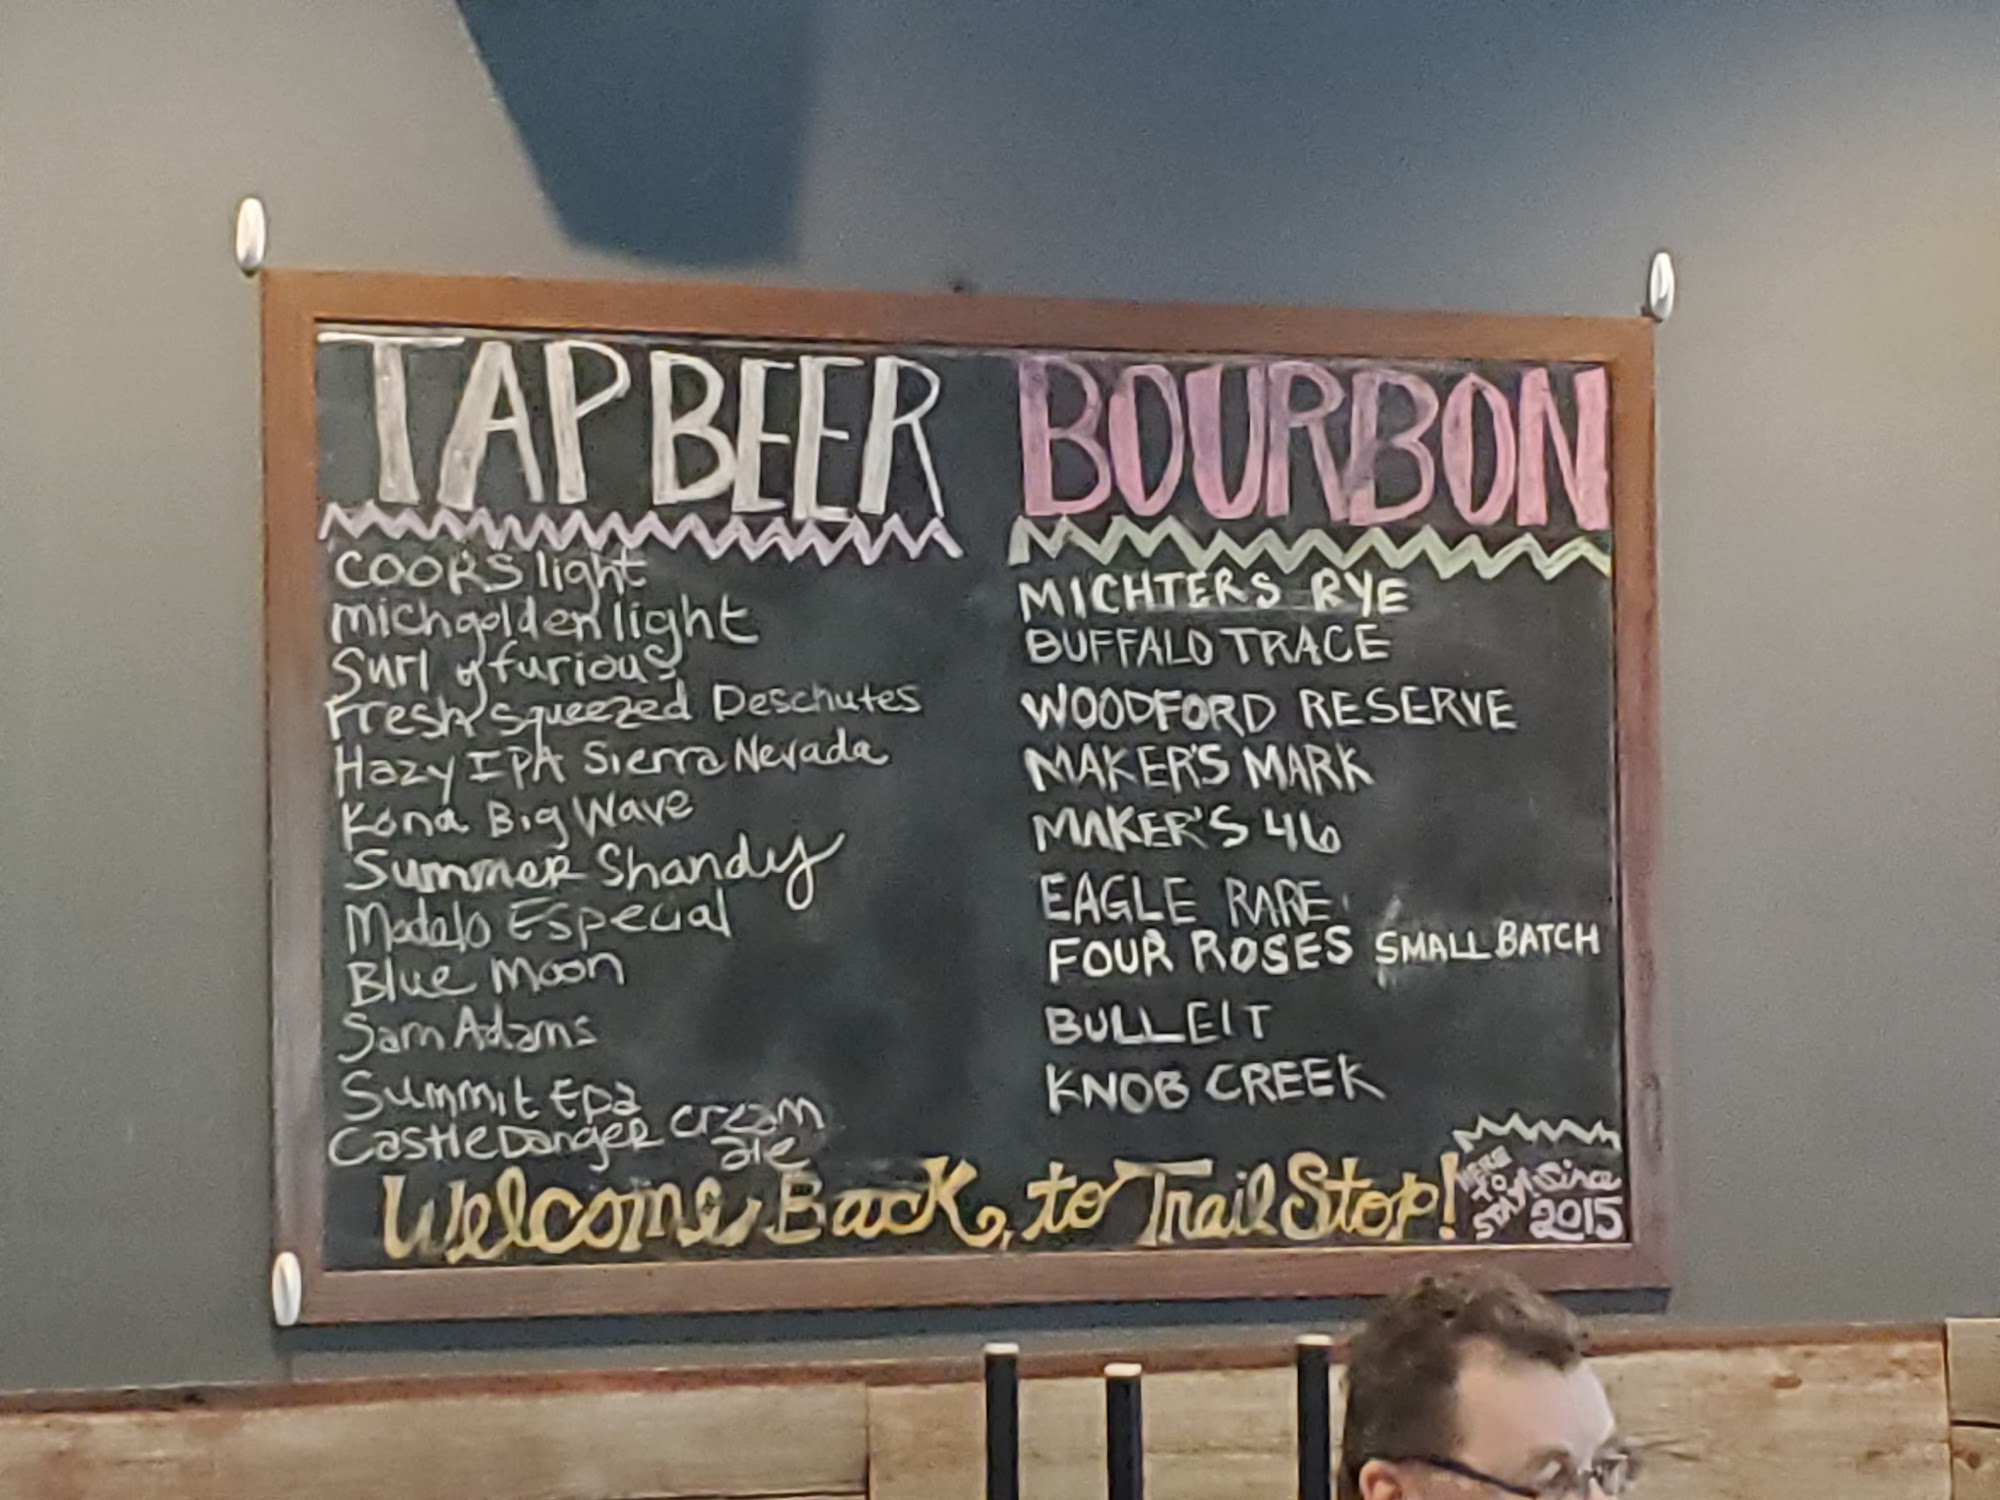 TAP BEER
COORS light
michgolden light
Surly furious
Fresh squeezed Deschutes
Hazy IPA Sierra Nevada
Kona Big Wave
Summer Shandy
Modelo Especial
Blue Moon
Sam Adams
Summit Epa
Castle Danger cream
ale
BOURBON
MICHTERS RYE
BUFFALO TRACE
WOODFORD RESERVE
MAKER'S MARK
MAKER'S 46
EAGLE RARE
FOUR ROSES SMALL BATCH
BULLEIT
KNOB CREEK
Welcome Back, to Trail Stop!
HERE
TO
STAY!
Since
2015